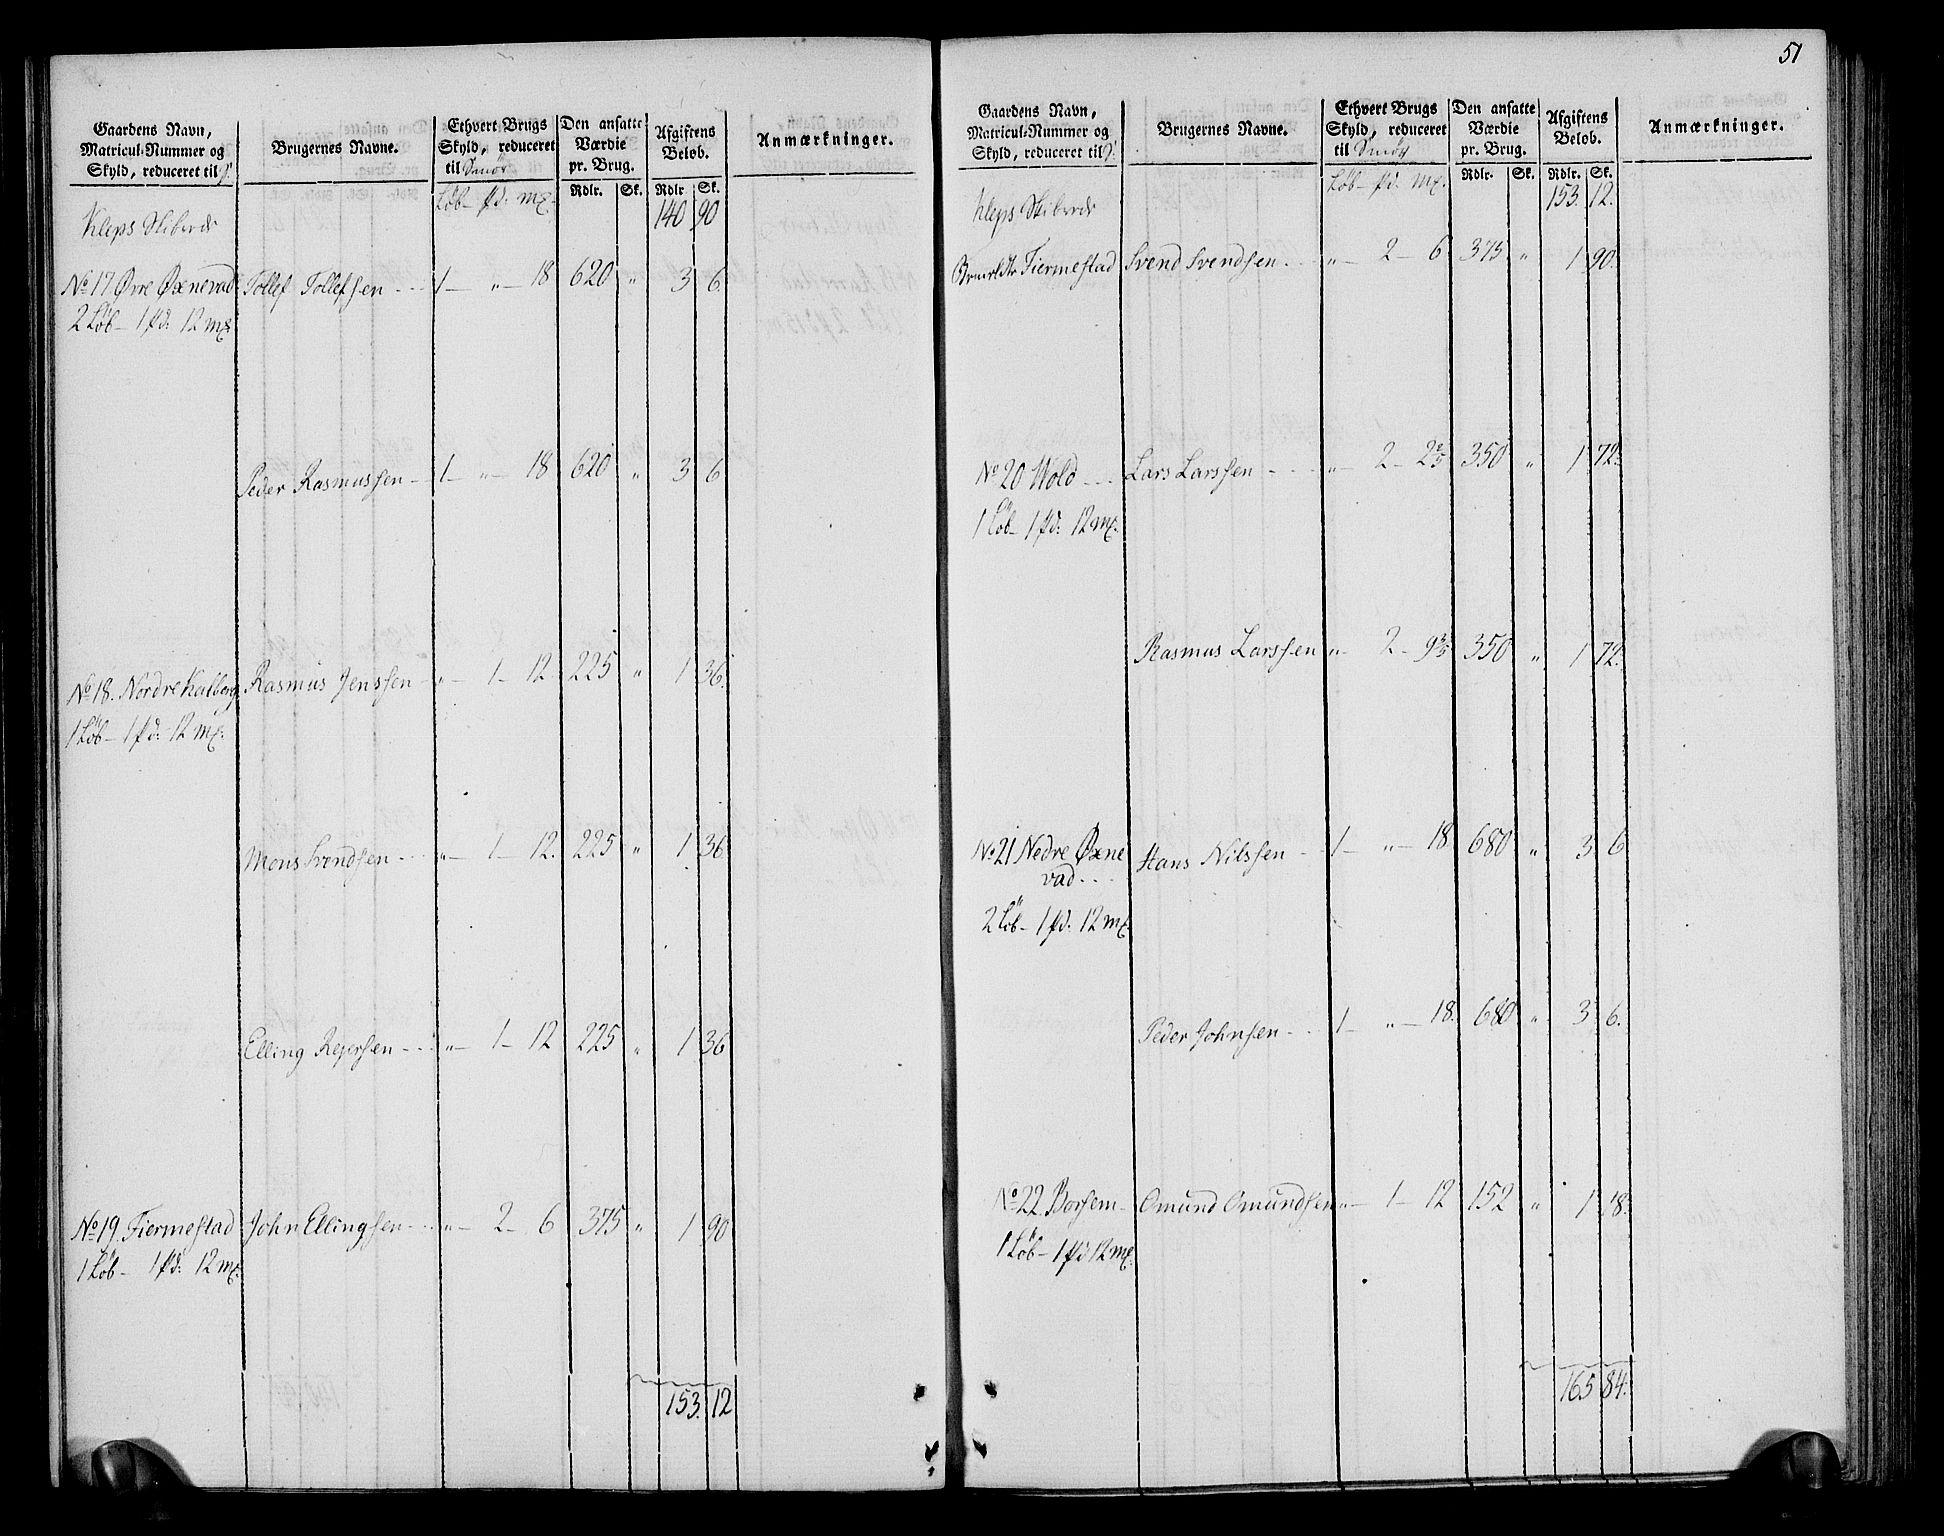 Gaardens Navn,
Matricul-Nummer og
Skyld, reduceret til
Brugernes Navne.
Ethvert Brugs
Skyld, reduceret
til Smør
Løb - pd: mk.
Den ansatte
Værdie
pr. Brug.
Rdlr. Sk.
Afgiftens
Beløb.
Rdlr Sk.
Anmærkninger.
Kleps Skibrede 140 90
No 17 Øvre Øxnevad Tollef Tollefsen - - - 1 - " - 18 620 " 3 6.
2 Løb - 1 pd: 12 mk.
Peder Rasmussen - 1 - " - 18 620 " 3 6
No 18. Nordre Kalberg Rasmus Jenssen - " - 1 - 12. 225 " 1 36.
1 Løb - 1 pd: 12 mk.
Mons Svendsen - - - " - 1 - 12. 225 " 1 36
Elling Rejersen - - - " - 1 - 12 225 " 1 36
No 19. Tiermestad John Ellingsen - - - " - 2 - 6 375 " 1 90
1 Løb - 1 pd: 12 mk.
153. 12
51
Gaardens Navn,
Matricul-Nummer og
Skyld, reduceret til
Brugernes Navne.
Ethvert Brugs
Skyld, reduceret
til Smør
Løb - pd: mk.
Den ansatte
Værdie
pr. Brug.
Rdlr. Sk.
Afgiftens
Beløb.
Rdlr. Sk.
Anmærkninger.
Kleps Skibrede 153. 12.
Tiermestad Svend Svendsen - - - " - 2 - 6 375 " 1 90.
No 20 Wold - - - Lars Larssen - - - " - 2 - 2 2/5 350 " 1 72.
1 Løb - 1 pd: 12 mk.
Rasmus Larssen " - 2 - 9 3/5 350 " 1 72.
No 21 Nedre Øxne
vad - - - Hans Nilssen - 1 - " - 18 680 " 3. 6
2 Løb - 1 pd: 12 mk.
Peder Johnsen - - - 1 - " - 18. 680 " 3 6.
No 22. Borsem - Omund Omundsen " - 1 - 12 152 " 1 18.
1 Løb - 1 pd 12 mk.
165 84.